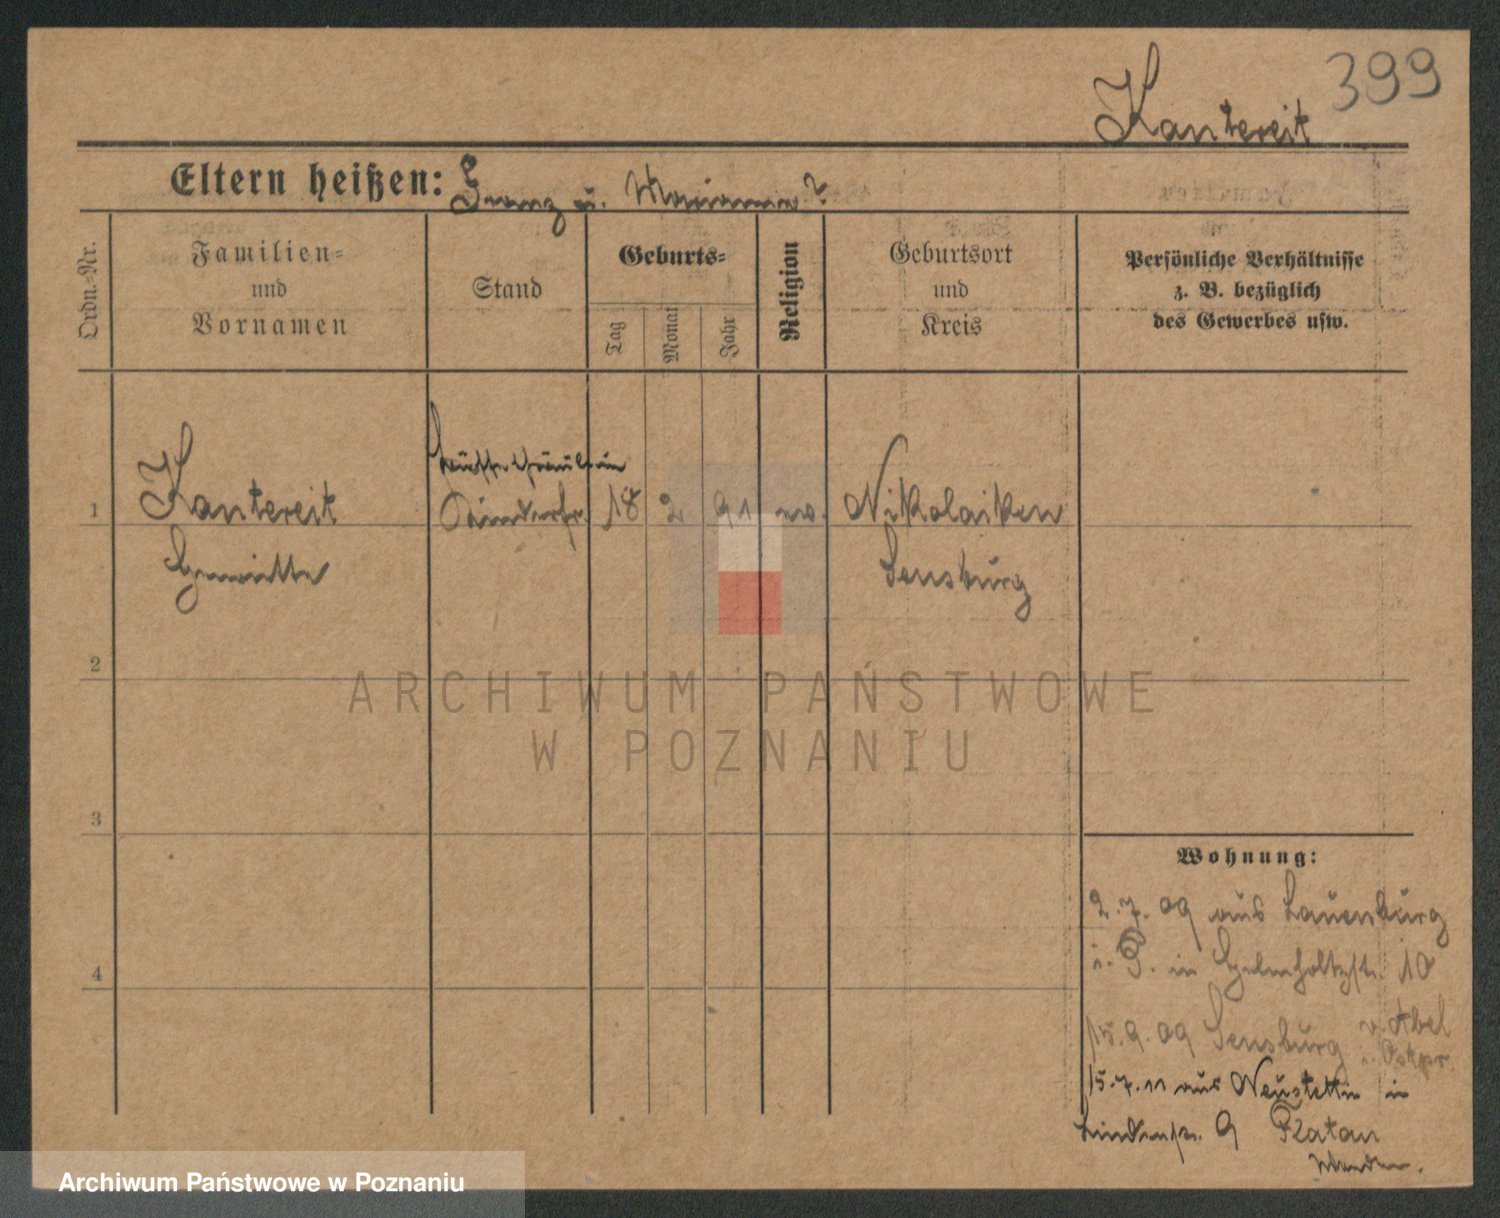 399
Kantereit
Eltern heißen: Franz u. Marianna ?
Ordn.-Nr.
Familien-
und
Vornamen
Stand
Geburts-
Tag
Monat
Jahr
Religion
Geburtsort
und
Kreis
Persönliche Verhältnisse
z. B. bezüglich
des Gewerbes usw.
1
Kantereit
18 2 91
Nikolaiken
Sensburg
2
3
4
ARCHIWUM PAŃSTWOWE
W POZNANIU
Wohnung:
2.7.09 aus Lauenburg
i. P. in Helmholtzstr. 10
15.9.09 Sensburg v. Abel
Ostpr
15.7.11 aus Neustettin in
Lindenstr. 9 Flatau
Archiwum Państwowe w Poznaniu